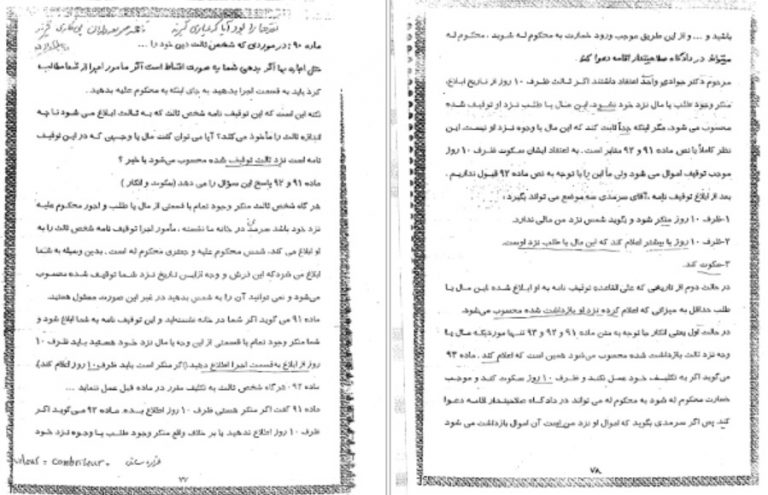 ماده ۹۰: در موردی که شخص ثالث دین خود را ...
مثل اجاره بها اگر بدهی شما به صورت اقساط است اگر مامور اجرا از شما مطالبه
کرد باید به قسمت اجرا بدهید به جای اینکه به محکوم علیه بدهید.
نکته این است که این توقیف نامه شخص ثالث که به ثالث ابلاغ می شود تا چه
اندازه ثالث را مأخوذ می‌کند؟ آیا می توان گفت مال یا وجهی که در این توقیف
نامه است نزد ثالث توقیف شده محسوب می‌شود یا خیر ؟
ماده ۹۱ و ۹۲ پاسخ این سؤال را می دهد (سکوت و انکار)
هر گاه شخص ثالث منکر وجود تمام یا قسمتی از مال یا طلب و اجور محکوم علیه
نزد خود باشد سرمدی در خانه ما نشسته ، مأمور اجرا توقیف نامه شخص ثالث را به
او ابلاغ می کند. شمس محکوم علیه و جعفری محکوم له است. بدین وسیله به شما
ابلاغ می شود که این فرش و وجه از این تاریخ نزد شما توقیف شده محسوب
می‌شود و نمی توانید آن را به شمس بدهید در غیر این صورت مسئول هستید.
ماده ۹۱ می گوید اگر شما در خانه نشسته‌اید و این توقیف نامه به شما ابلاغ شود و
شما منکر وجود تمام یا قسمتی از این وجه یا مال نزد خود هستید باید ظرف ۱۰
روز از ابلاغ به قسمت اجرا اطلاع دهید.(اگر منکر است باید ظرف ۱۰ روز اعلام کند).
ماده ۹۲- هر گاه شخص ثالث به تکلیف مقرر در ماده قبل عمل ننماید ...
ماده ۹۱ گفت اگر منکر هستی ظرف ۱۰ روز اطلاع بده. ماده ۹۲ می‌گوید اگر
ظرف ۱۰ روز اطلاع ندهید یا بر خلاف واقع منکر وجود طلب یا وجوه نزد خود
۷۷
باشید و ... و از این طریق موجب ورود خسارت به محکوم له شوید ، محکوم له
میتواند در دادگاه صلاحیتدار اقامه دعوا کند.
مرحوم دکتر جوادی واحد اعتقاد داشتند اگر ثالث ظرف ۱۰ روز از تاریخ ابلاغ،
منکر وجود طلب یا مال نزد خود نشود، این مال یا طلب نزد او توقیف شده
محسوب می شود، مگر اینکه جداً ثابت کند که این مال یا وجوه نزد او نیست. این
نظر کاملاً با نص ماده ۹۱ و ۹۲ مغایر است . به اعتقاد ایشان سکوت ظرف ۱۰ روز
موجب توقیف اموال می شود ولی ما این را با توجه به نص ماده ۹۲ قبول نداریم .
بعد از ابلاغ توقیف نامه ،آقای سرمدی سه موضع می تواند بگیرد :
۱-ظرف ۱۰ روز منکر شود و بگوید شمس نزد من مالی ندارد.
۲-ظرف ۱۰ روز یا بیشتر اعلام کند که این مال یا طلب نزد اوست.
۳-سکوت کند.
در حالت دوم از تاریخی که علی القاعده توقیف نامه به او ابلاغ شده این مال یا
طلب حداقل به میزانی که اعلام کرده نزد او بازداشت شده محسوب می‌شود.
در حالت اول یعنی انکار با توجه به متن ماده ۹۱ و ۹۲ و ۹۳ تنها موردیکه مال یا
وجه نزد ثالث بازداشت شده محسوب می شود همین است که اعلام کند. ماده ۹۳
می‌گوید اگر به تکلیف خود عمل نکند و ظرف ۱۰ روز سکوت کند و موجب
خسارت محکوم له شود به محکوم له می تواند در دادگاه صلاحیتدار اقامه دعوا
کند. پس اگر سرمدی بگوید که اموال او نزد من است آن اموال بازداشت می شود
۷۸